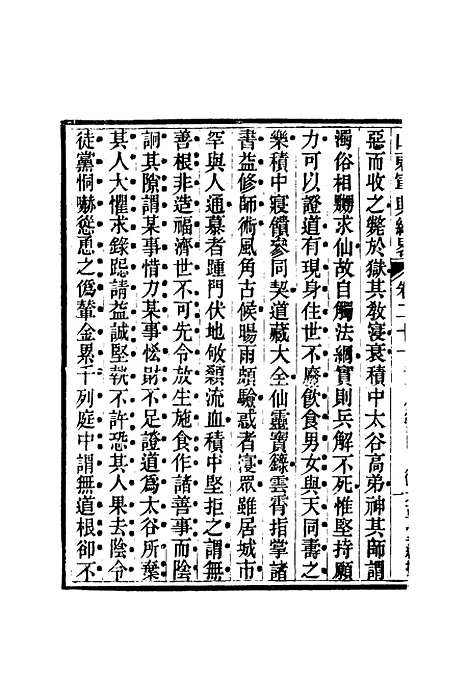 山東軍興紀略 卷二十一
惡而收之斃於獄其敎寖衰積中太谷高弟神其師謂
濁俗相嬲求仙故自觸法網實則兵解不死惟堅持願
力可以證道有現身住世不廢飮食男女與天同壽之
樂積中寢饋參同契道藏大全仙靈寶錄雲霄指掌諸
書益修師術風角占候暘雨頗驗惑者寖眾雖居城市
罕與人通慕者踵門伏地敂顙流血積中堅拒之謂無
善根非造福濟世不可先令放生施食作諸善事而陰
詗其隙謂某事惜力某事悋財不足證道爲太谷所棄
其人大懼求錄跽請益誠堅執不許恐其人果去陰令
徒黨恫嚇慫恿之僞輦金累千列庭中謂無道根卻不